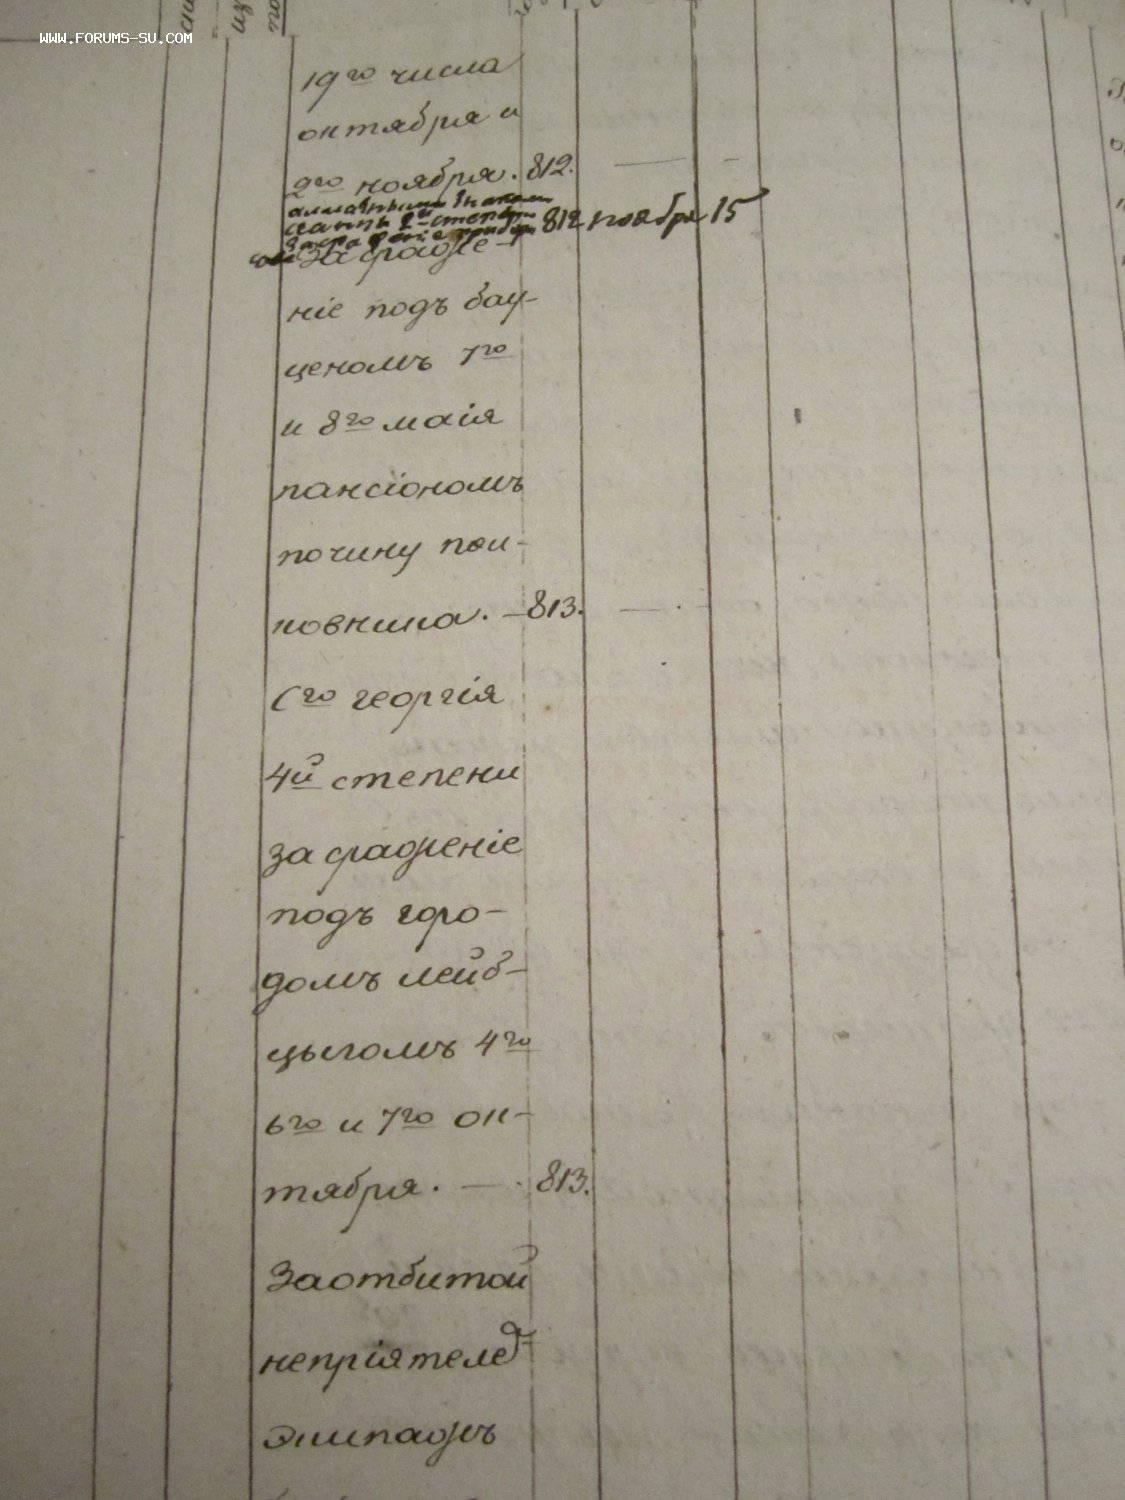 WWW.FORUMS-SU.COM
19го числа
октября и
2го ноября. 812.
алмазными знаками
анны 2й степени 812 ноября 15
за сраженіе
за сраже-
ніе подъ бау-
ценомъ 7го
и 8го маія
пансіономъ
почину пол-
ковника. — 813.
Сго георгія
4й степени
за сраженіе
подъ горо-
домъ лейб-
цыгомъ 4го
6го и 7го ок-
тября. — 813.
За отбитой
непріятеле
экипажъ